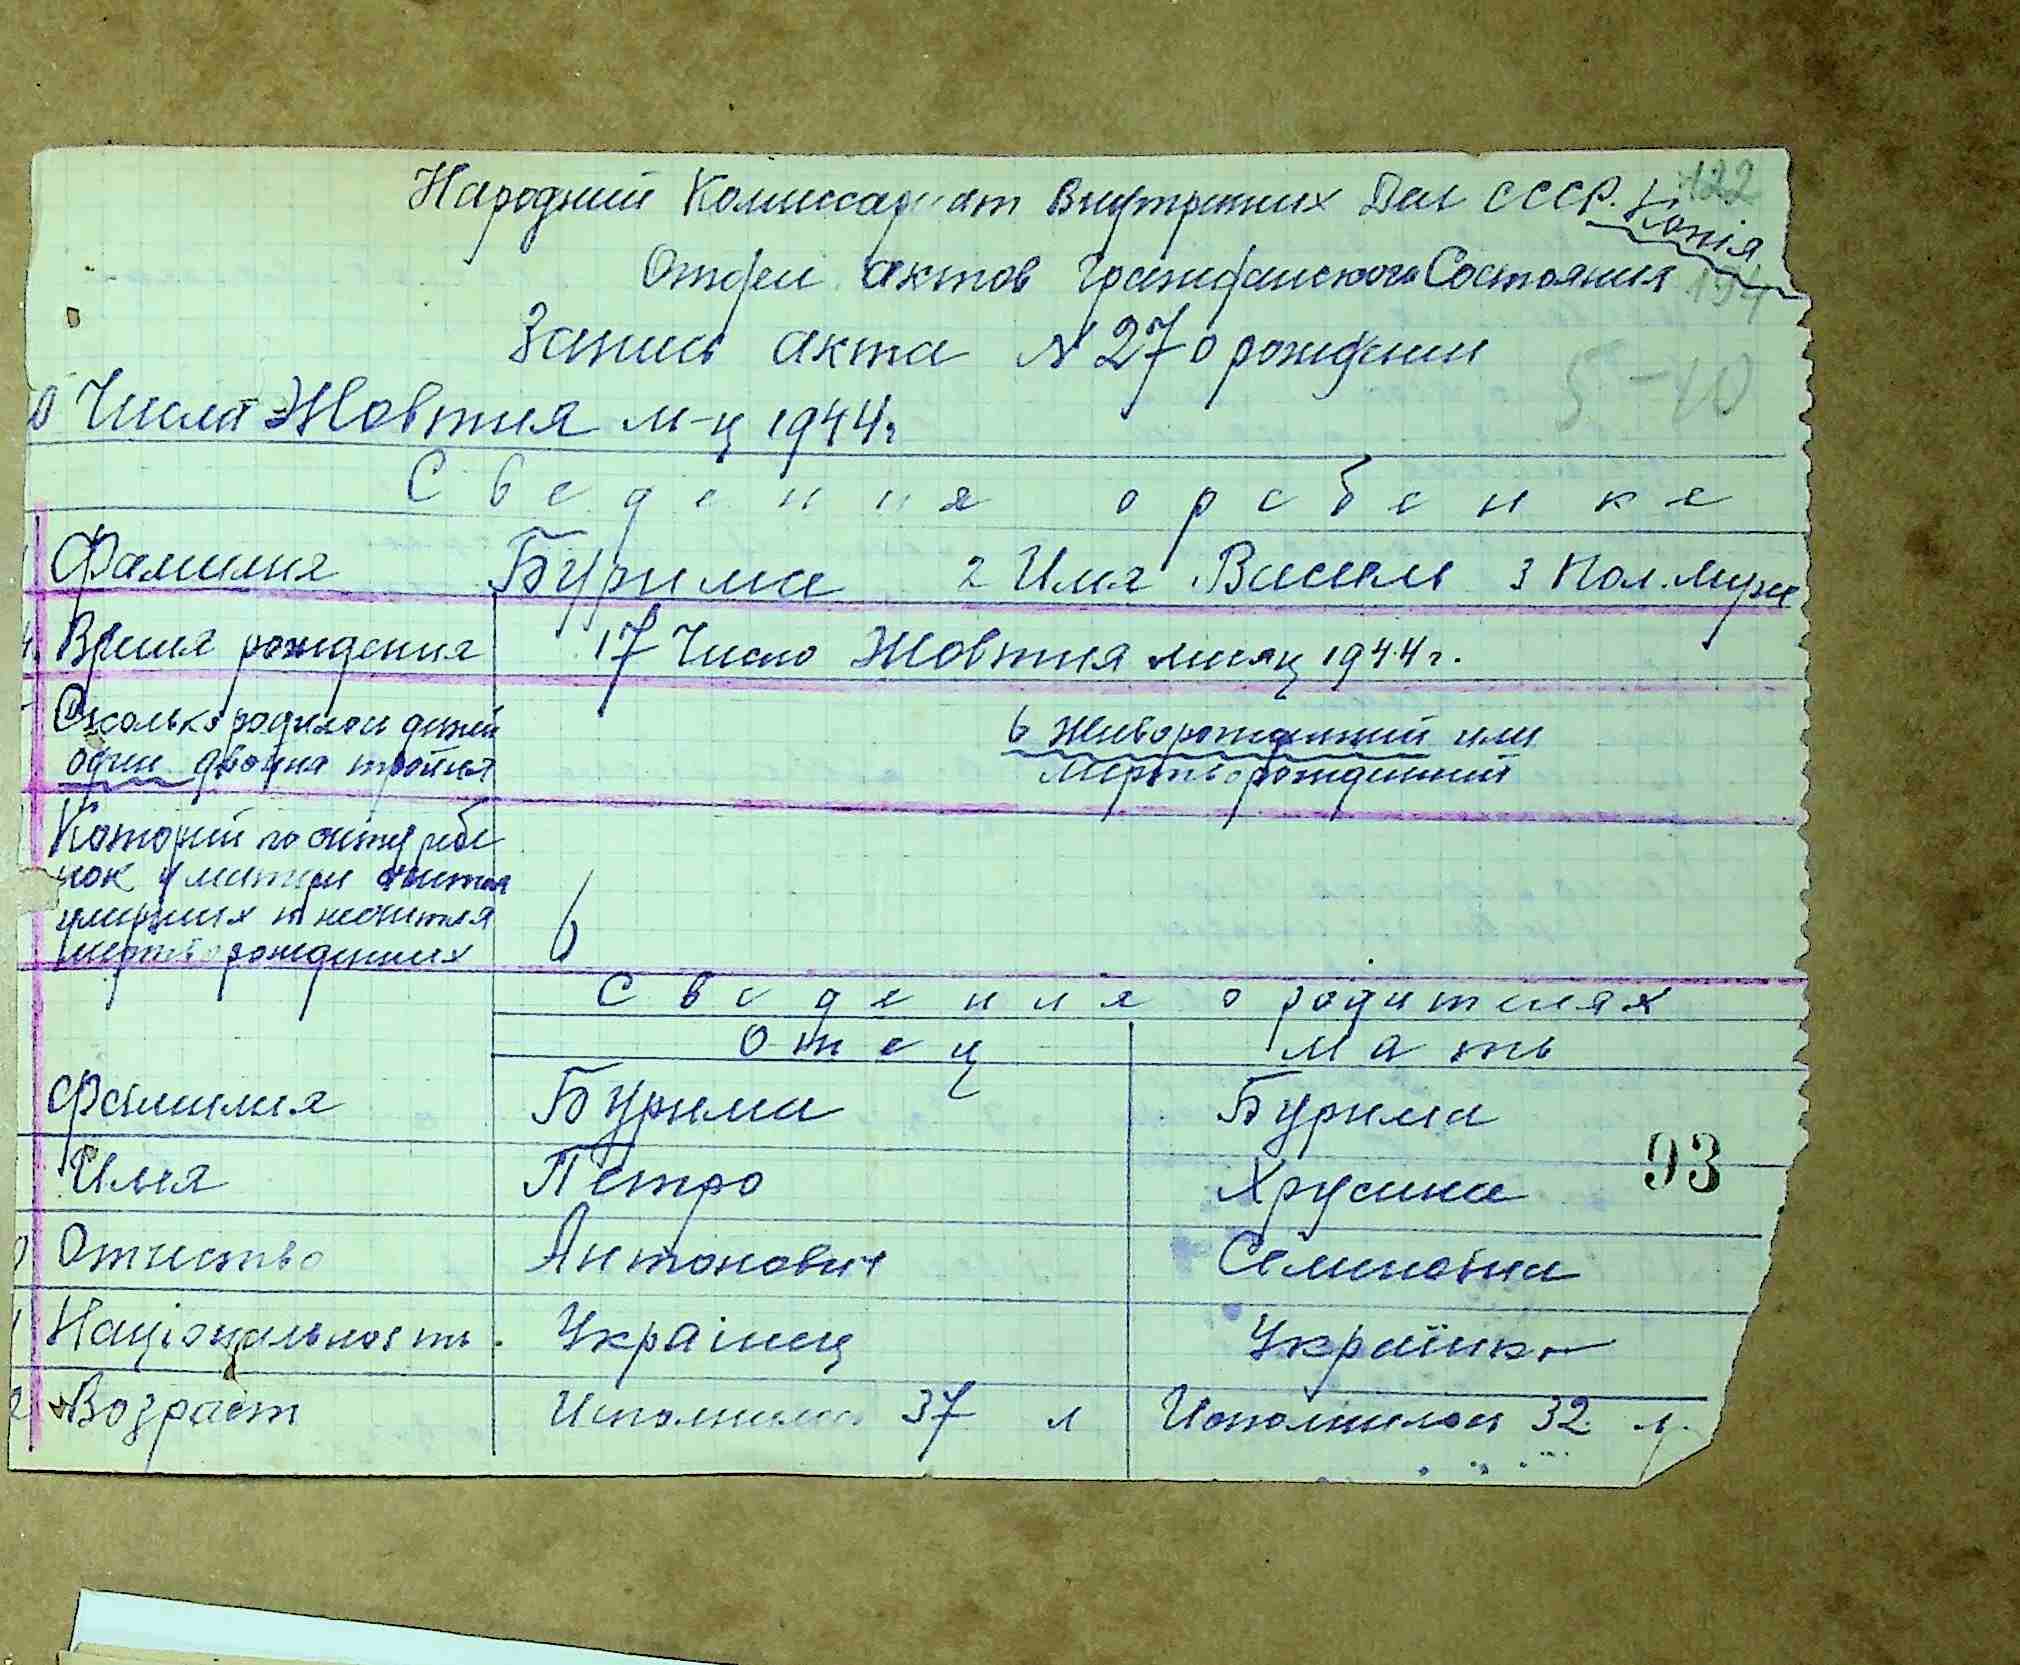 122
Народний Комиссариат Внутрених Дел СССР. Копія
Отдел актов Гражданского Состояния 194
Запись акта № 27 о рождении
5-40
Числа Жовтня м-ц 1944 г
Сведения о ребенке
Фамилия Бурима 2 Имя Василь 3 Пол. Муж
4. Время рождения 17 Число Жовтня месяц 1944 г.
Сколько родилось детей 6 Живорожденний или
один двойня тройня мертворожденний
Которий по счету ребе
нок у матери считая
умерших и не считая
мертворожденних 6
Сведения о родителях
Отец Мать
Фамилия Бурима Бурима
Имя Петро Хрусина
93
Отчество Антонович Семеновна
Національность. Українец Українка
Возраст Исполнилось 37 л Исполнилось 32 л.